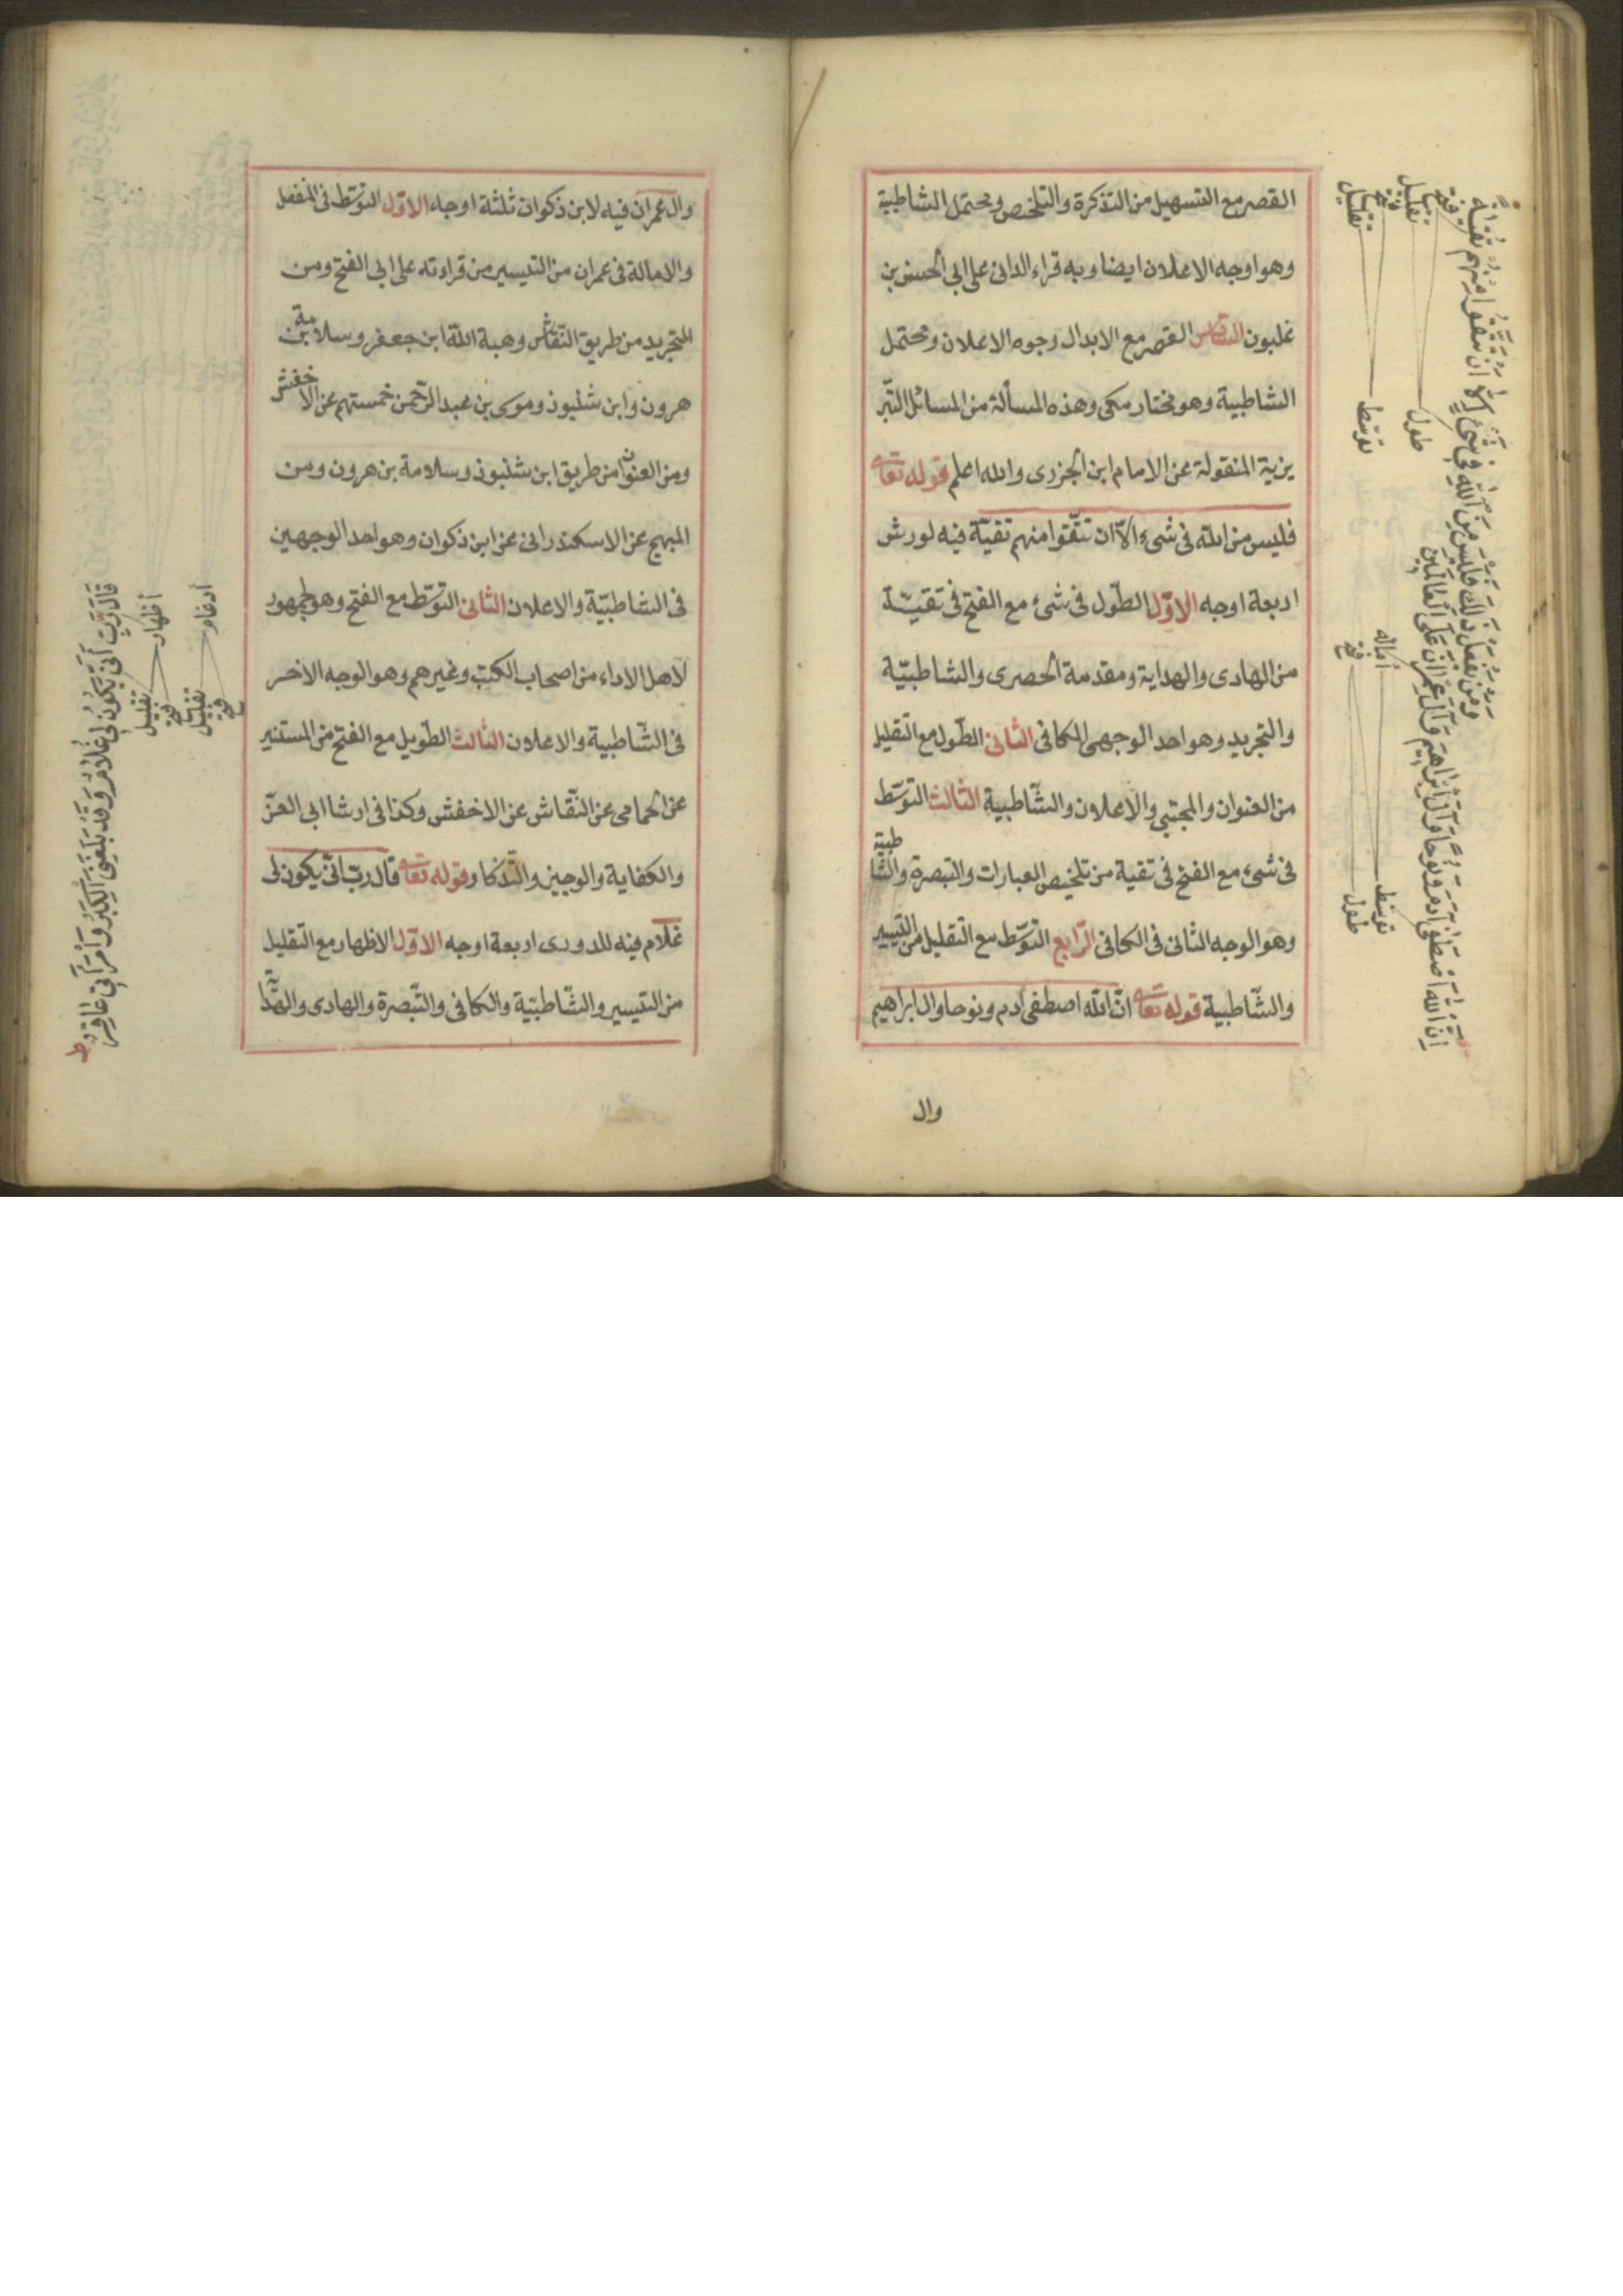 القصر مع التسهيل من التذكرة والتلخيص ويحتمل الشاطبية
وهو اوجه الاعلان ايضا وبه قراء الدانى على ابى الحسن بن
غلبون السادس القصر مع الابدال وجوه الاعلان ويحتمل
الشاطبية وهو مختار مكى وهذه المسألة من المسائل التبر
يزية المنقولة عن الامام ابن الجزرى والله اعلم قوله تعالى
فليس من الله فى شىء الّا ان تتّقوا منهم تقيّة فيه لورش
اربعة اوجه الاوّل الطّول فى شىء مع الفتح فى تقيّة
من الهادى والهداية ومقدمة الحصرى والشاطبيّة
والتجريد وهو احد الوجهى الكافى الثانى الطّول مع التقليل
من العنوان والمجتبى والاعلان والشّاطبية الثالث التوسّط
فى شىء مع الفتح فى تقية من تلخيص العبارات والتبصرة والشّاطبية
وهو الوجه الثانى فى الكافى الرّابع التوّسّط مع التقليل من التيسير
والشّاطبية قوله تعالى انّ الله اصطفى ادم ونوحا وال ابراهيم
وال
تقليل
فتح
طول
توسّط
ومن يفعل ذلك فليس من الله فى شىء الا ان تتقوا منهم تقاة
امالة
فتح
توسّط
طول
ان الله اصطفى ادم ونوحا وآل ابراهيم وآل عمران على العالمين
وال عمران فيه لابن ذكوان ثلثة اوجه الاوّل التوسّط فى المنفصل
والامالة فى عمران من التيسير من قراءته على ابى الفتح ومن
التجريد من طريق النّقاش وهبة الله ابن جعفر وسلامة بن
هرون وابن شنبوذ وموسى بن عبد الرّحمن خمستهم عن الاخفش
ومن العنوان من طريق ابن شنبوذ وسلامة بن هرون ومن
المبهج عن الاسكندرانى عن ابن ذكوان وهو احد الوجهين
فى الشاطبيّة والاعلان الثانى التوسّط مع الفتح وهو لجمهور
لاهل الاداء من اصحاب الكتب وغيرهم وهو الوجه الاخر
فى الشّاطبية والاعلان الثالث الطّويل مع الفتح من المستنير
عن الحمامى عن النّقاش عن الاخفش وكذا فى ارشا ابى العزّ
والكفاية والوجيز والتّذكار وقوله تعالى قال ربّ انّى يكون لى
غلام فيه للدورى اربعة اوجه الاوّل الاظهار مع التقليل
من التيسير والشّاطبيّة والكافى والتّبصرة والهادى والهدّا
ادغام
اظهار
فتح
تقليل
فتح
تقليل
قال رب انى يكون لى غلام وقد بلغنى الكبر وامرأتى عاقر